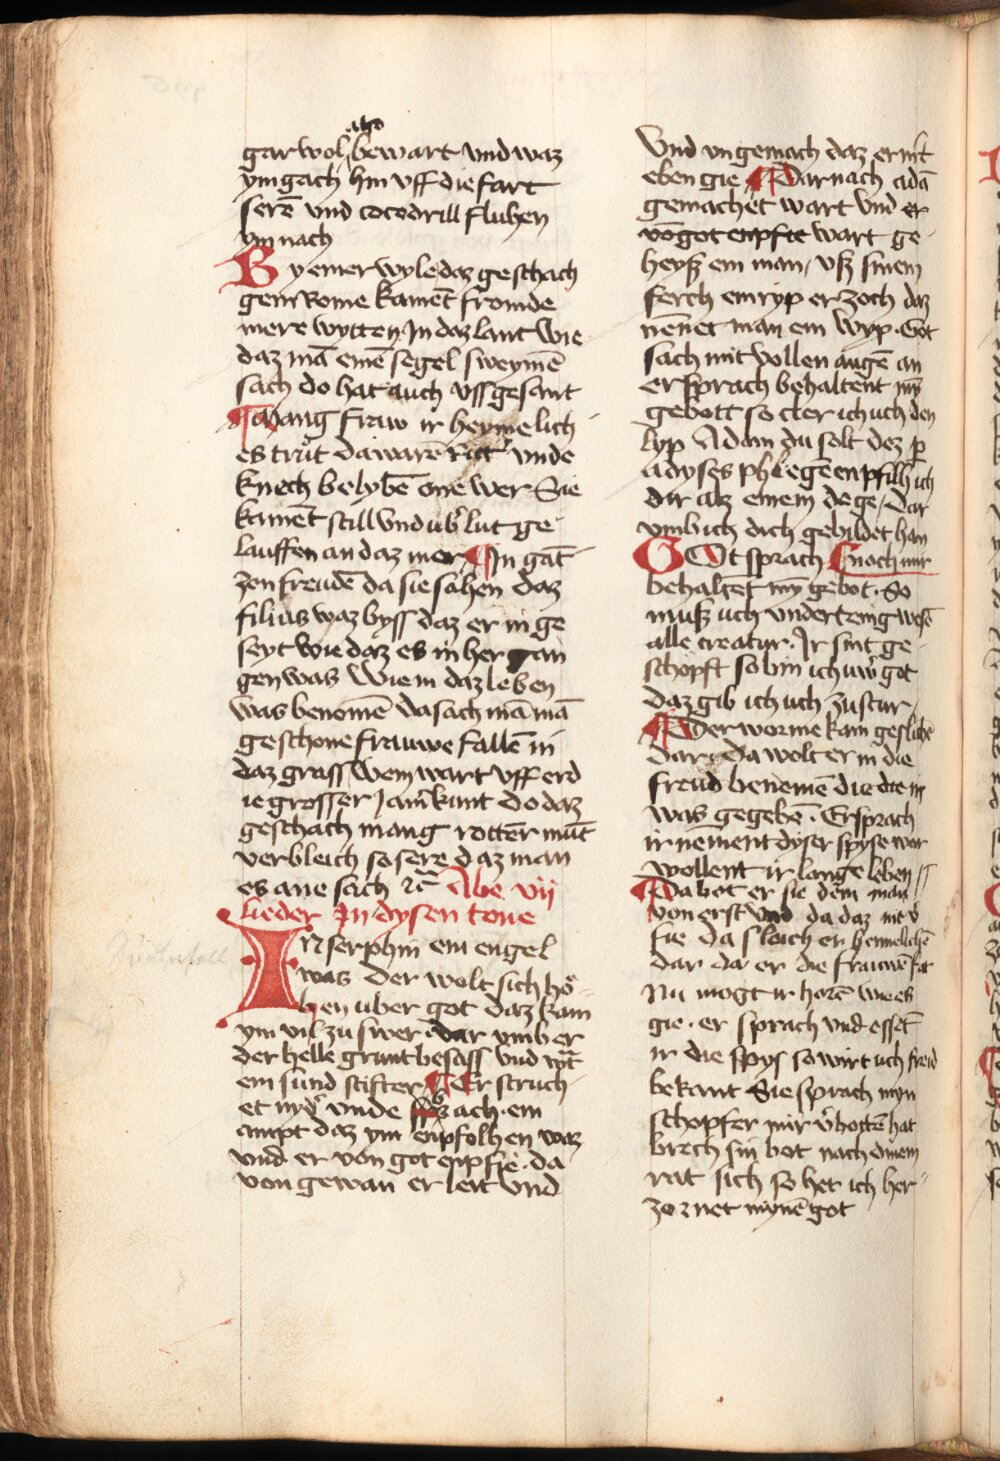 also
gar wol bewart vnd waz
ym gach hin vff die fart
serē vnd cocodrill fluhen
ym nach
By einer wyle daz geschach
gein Rome kament fromde
mere wytten In daz lant wie
daz mā einē segel sweymē
sach do hat auch vss gesant
Mang fraw ir heymelich
es trut da warē vnde
knech belybē one wer Sie
kament still vnd vbˀ lut ge
lauffen an daz mer In gāt
zen freudē da sie sahen daz
filius waz byss daz er in ge
seyt wie daz es in her gan
gen was Wie in daz leben
was benomē da sach mā mā
ge schone frauwe fallē in
daz grass Wem wart vff erd
ie grosser Jamˀ kunt do daz
geschach mang rotter mūt
verbleich so sere daz man
es ane sach Abe vij
lieder In dysen tone
In serphin ein engel
was der wolt sich hö
hen uber got daz kam
ym vil zu swer dar vmb er
der helle grunt besass vnd
ein sund stifter Er struch
et nydˀ vnde ach ein
ampt daz ym enpfolhen waz
vnd er von got enpfie da
von gewan er leit vnd
Vnd vngemach daz er nit
eben gie Darnach adā
gemachet wart Vnd er
vō got enpfie wart ge
heyß em man, vß sinem
ferch em ryp er zoch daz
nēnet man em wyp Got
sach mit vollen augē an
er sprach behaltent myn
gebott so ich uch den
lyp Adam du solt dez
adyses phlegē enpfilh ich
dir alz einem dege, dar
vmb ich dich gebildet han
GOt sprach Enoch mir
behaltet my gebot. So
muß uch vnderteing wesē
alle creatur. Ir sint ge
schopft so bin ich uwˀ got
daz gib ich uch zu stur
Der worme kam geslichē
dar, da wolt er in die
freud benemē die die in
was gegebē. Er sprach
ir nement dyser spyse war
wollent ir lange leben
Da bot er sie dem man
von erst vnd da daz
fie da sleich er heimelichē
dar da er die frauwē
Nu mogt ir horē wie es
gie. er sprach vnd essēt
ir die spys so wirt uch freud
bekant Sie sprach myn
schopfer mir vˀbottē hat
brech sin bot nach dinem
rat sich so het ich her
zornet mynē got